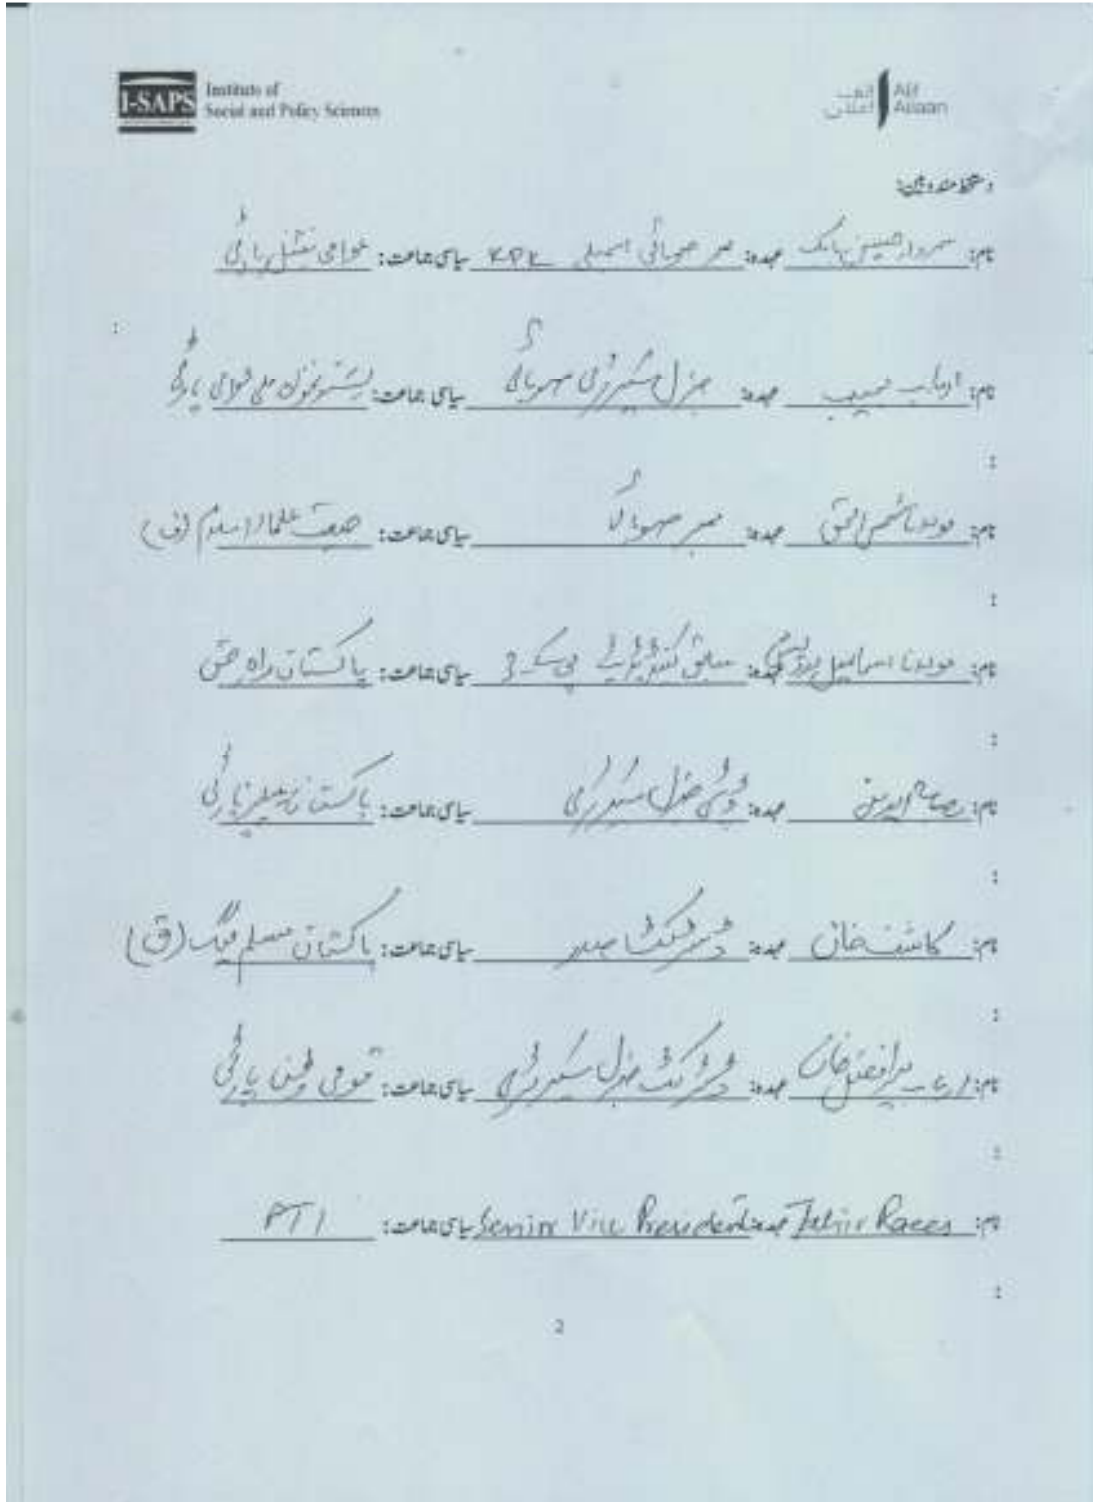 I-SAPS
Institute of
Social and Policy Sciences
الف اعلان
Alif Ailaan
دستخط کنندہ مندوبین:
نام: سردار حسین بابک عہدہ: ممبر صوبائی اسمبلی KPK سیاسی جماعت: عوامی نیشنل پارٹی
:
نام: ارباب عہدہ: جنرل سیکرٹری صوبائی سیاسی جماعت: پشتونخواہ ملی عوامی پارٹی
:
نام: مولانا شمس الحق عہدہ: ممبر صوبائی سیاسی جماعت: جمعیت علماء اسلام (ف)
:
نام: مولانا اسماعیل درویش عہدہ: سابق پی کے 3 سیاسی جماعت: پاکستان راہ حق
:
نام: مصباح الدین عہدہ: ڈپٹی جنرل سیکرٹری سیاسی جماعت: پاکستان پیپلز پارٹی
:
نام: کاشف خان عہدہ: ڈسٹرکٹ صدر سیاسی جماعت: پاکستان مسلم لیگ (ق)
:
نام: افضل خان عہدہ: ڈسٹرکٹ جنرل سیکرٹری سیاسی جماعت: قومی وطن پارٹی
:
نام: عہدہ: Senior Vice President سیاسی جماعت: PTI
:
2